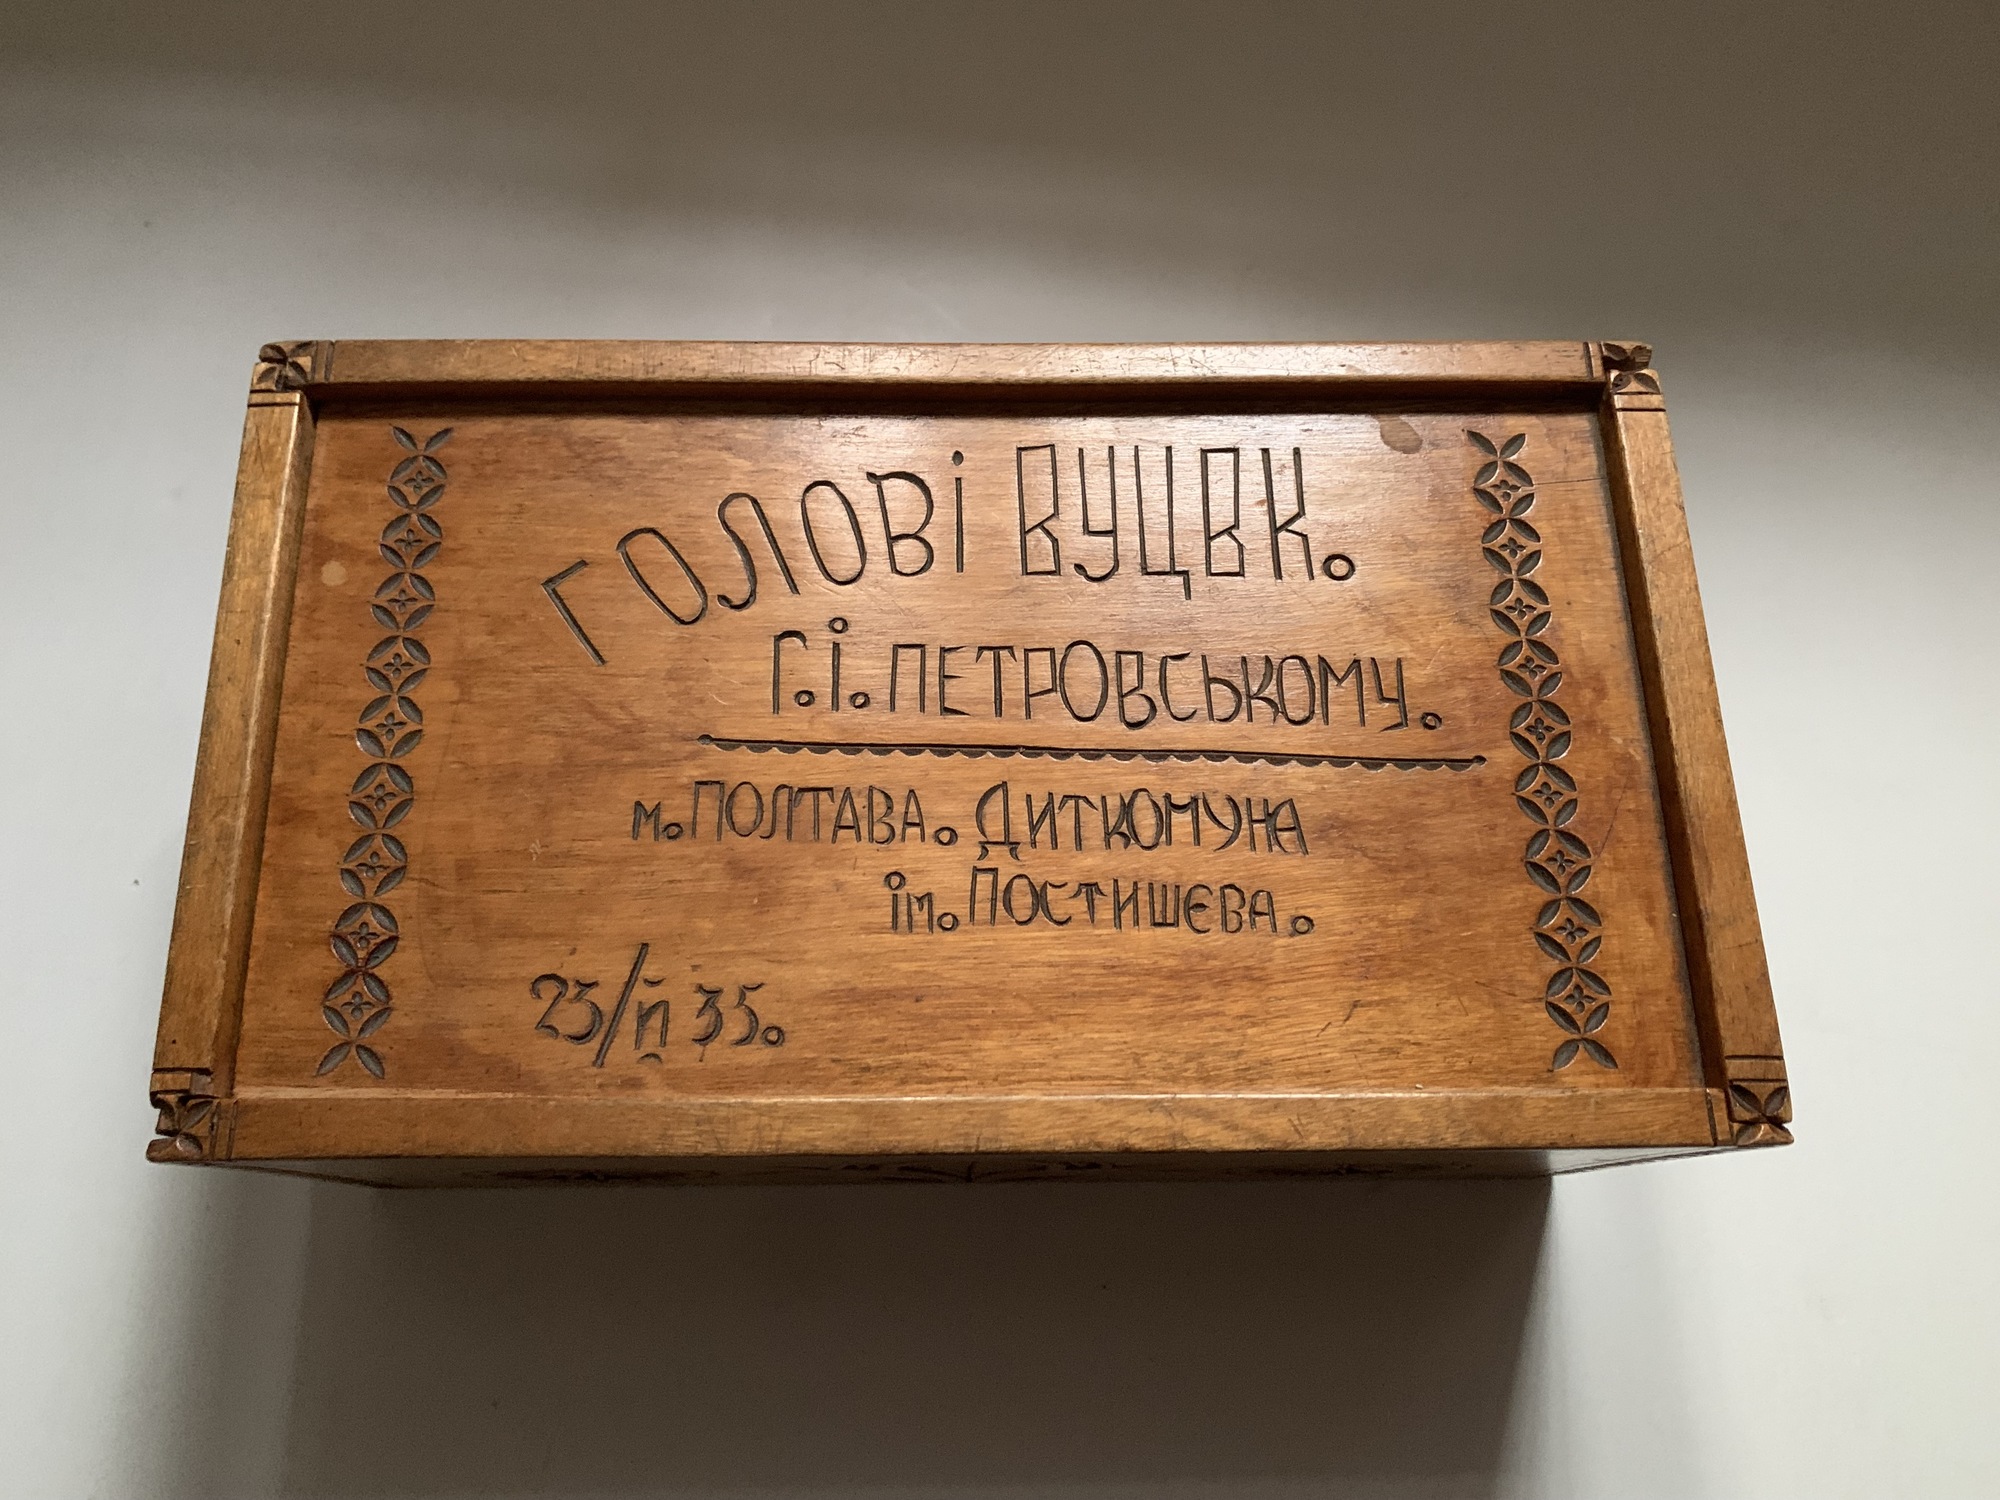 ГОЛОВІ ВУЦВК.
Г.І. ПЕТРОВСЬКОМУ.
м. ПОЛТАВА. ДИТКОМУНА
ім. ПОСТИШЕВА.
23/II 35.